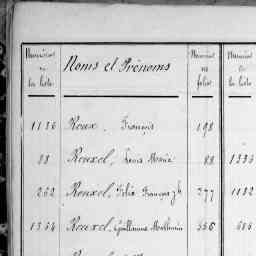 Numéros de la liste Noms et Prénoms Numéros du folio Numéros de la liste
1136 Roux, François 198
88 Rouxel, Louis Marie 88 1334
262 Rouxel, Félix François 277 1182
1364 Rouxel, Guillaume 556 686